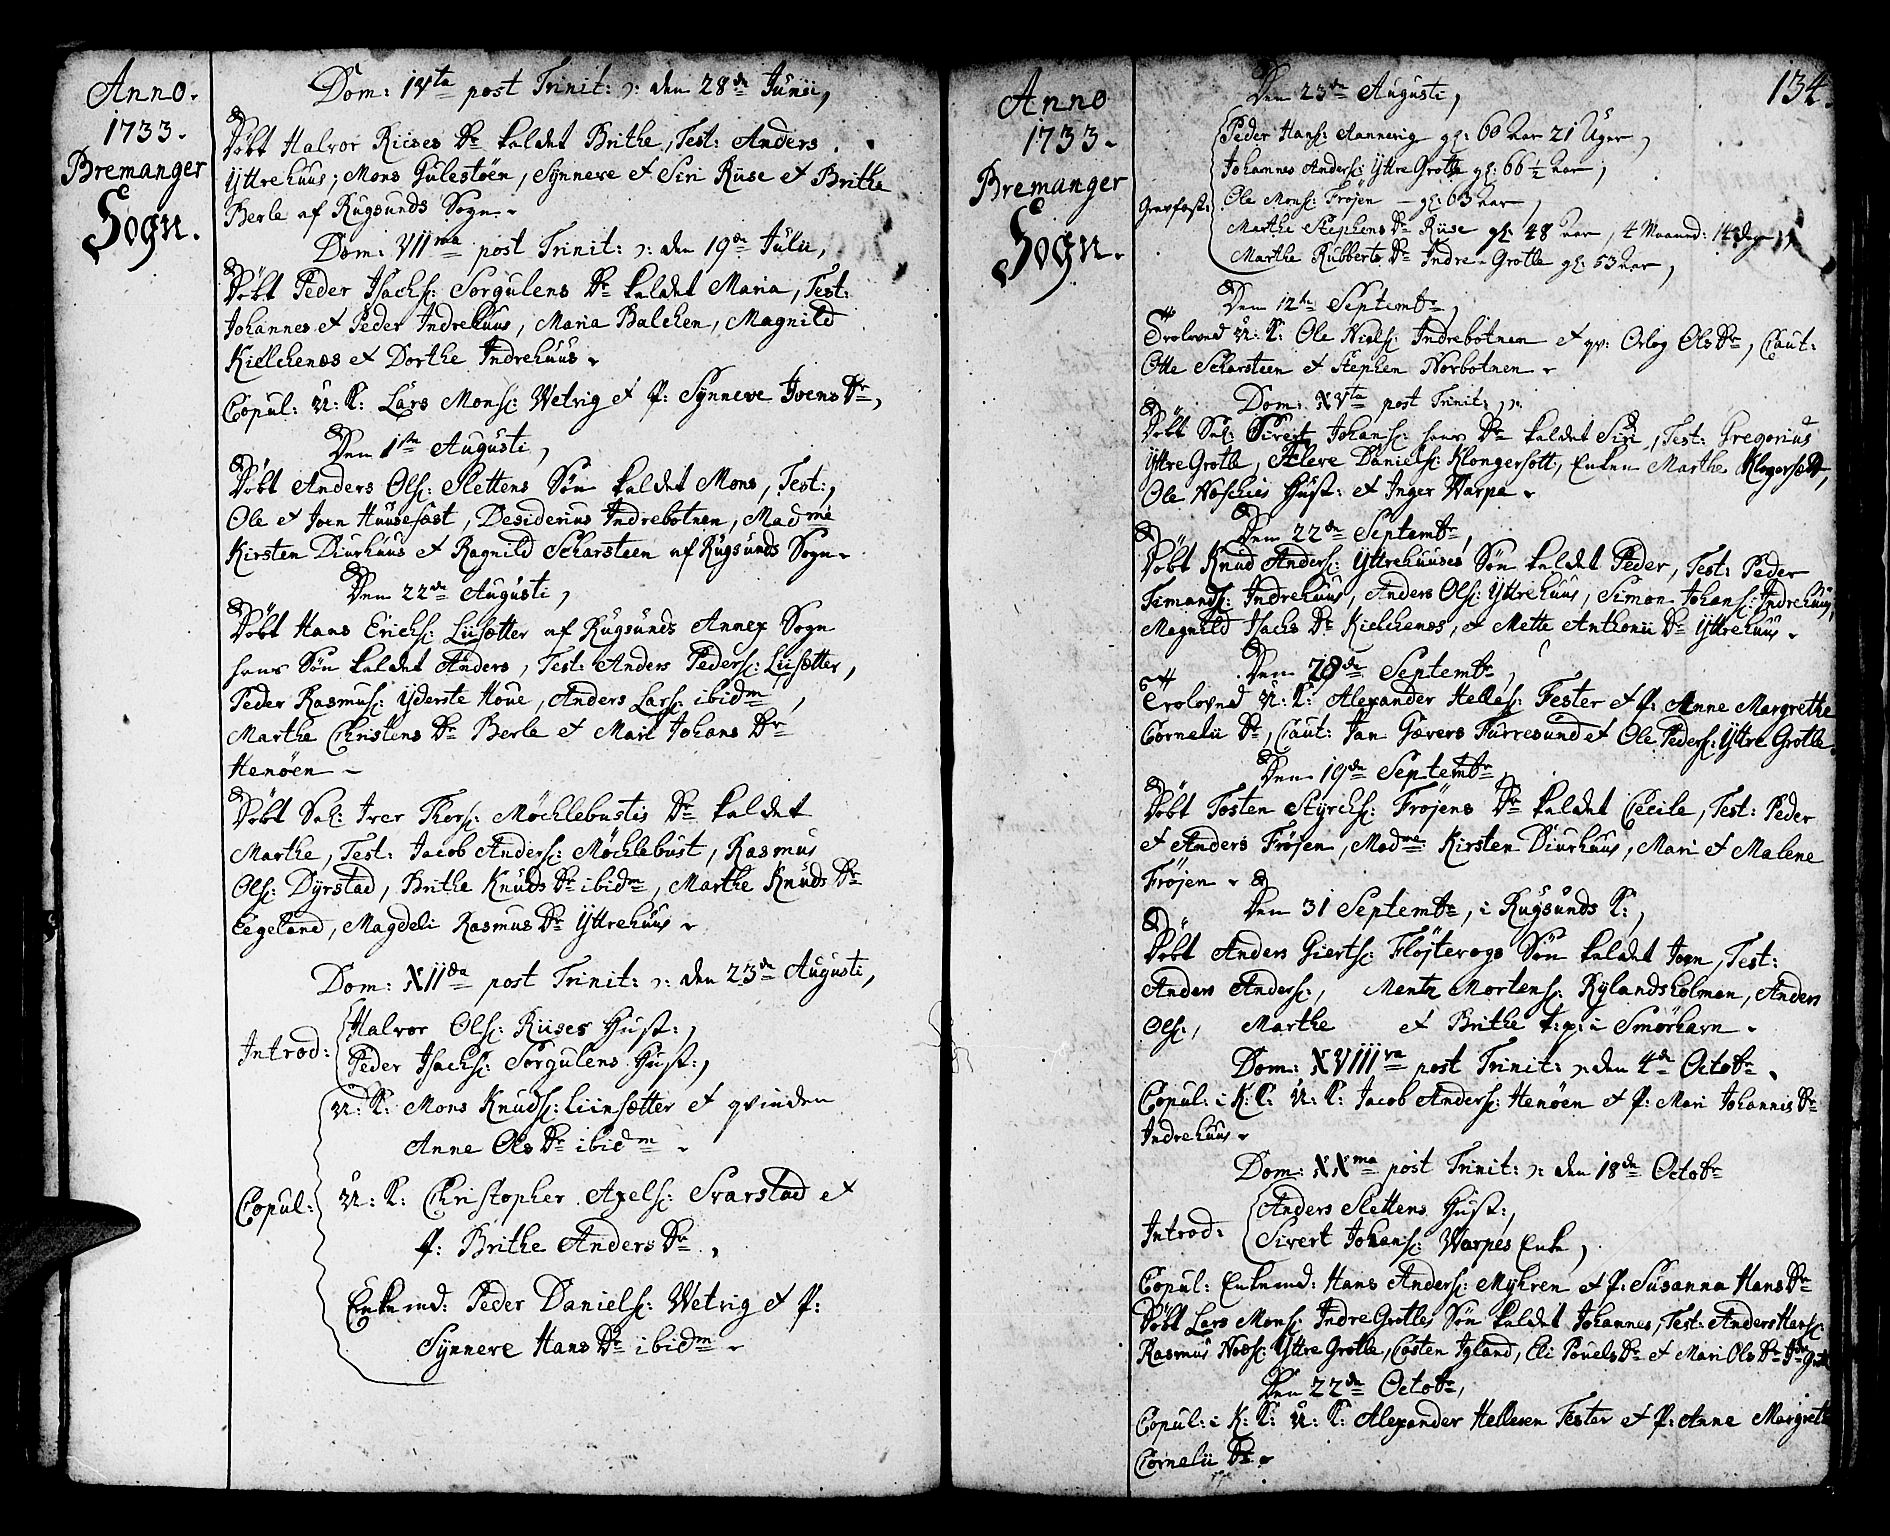 Anno.
1733.
Bremanger
Sogn.
Dom: IVta post Trinit: ɔ: den 28de Junii,
Döbt Halvor Riises Dr kaldet Brithe, Test: Anders
Yttrehuus, Mons Gulestöen, Synneve et Siri Riise et Brithe
Berle af Rugsunds Sogn.
Dom: VIIma post Trinit: ɔ: den 19de Julii,
Döbt Peder Isachs: Sörgulens Dr kaldet Maria, Test:
Johannes et Peder Indrehuus, Maria Balchen, Magnild
Kielchenæs et Dorthe Indrehuus.
Copul: U: K: Lars Mons: Wetvig et P: Synneve Joens Dr,
Den 1ste Augusti,
Döbt Anders Ols: Slettens Sön kaldet Mons, Test:
Ole et Joen Huusefast, Desiderius Indrebotnen, Madme
Kirsten Diurhuus et Ragnild Scharsteen af Rugsunds Sogn.
Den 22de Augusti,
Döbt Hans Erichs: Liisætter af Rugsunds Annex Sogn
hans Sön kaldet Anders, Test: Anders Peders: Liisætter,
Peder Rasmus: Yderste Houe, Anders Lars: ibidm,
Marthe Christens Dr Berle et Mari Johans Dr
Henöen
Döbt Sal: Iver Thors: Möchlebustis Dr kaldet
Marthe, Test: Jacob Anders: Möchlebust, Rasmus
Ols: Dyrstad, Brithe Knuds Dr ibidm, Marthe Knuds Dr
Eegeland, Magdeli Rasmus Dr Yttrehuus.
Dom: XIIda post Trinit: ɔ: den 23de Augusti,
Introd:
Halvor Ols: Riises Hust:,
Peder Isachs: Sörgulens Hust:,
Copul:
U: K: Mons Knuds: Liinsætter et qvinden
Anne Ols Dr ibidm.
U: K: Christopher Axels: Svarstad et
P: Brithe Anders Dr,
Enkemd: Peder Daniels: Wetvig et P:
Synneve Hans Dr ibidm.
Anno
1733.
Bremanger
Sogn.
134.
Den 23de Augusti,
Gravfæst:
Peder Hans: Aannevig gl: 60 Aar 21 Uger,
Johannes Anders: Yttre Grotle gl: 66 ½ Aar,
Ole Mons: Fröjen – gl: 63 Aar,
Marthe Stephens Dr Riise gl: 48 Aar, 4 Maaned: 14 dage,
Marthe Rubberts Dr Indre-Grotle gl: 53 Aar,
Den 12te Septembr,
Troloved U: K: Ole Niels: Indrebotnen et qv: Orlog Ols Dr, Caut:
Otte Scharsteen et Stephen Norbotnen.
Dom: XVta post Trinit: ɔ:
Döbt Sal: Sivert Johans: hans Dr kaldet Siri, Test: Gregorius
Yttre Grotle, Aleve Daniels: Klongersött, Enken Marthe Klongersött,
Ole Noschies Hust: et Inger Warpe.
Den 22de Septembr,
Döbt Knud Anders: Yttrehuuses Sön kaldet Peder, Test: Peder
Femands: Indrehuus, Anders Ols: Yttrehuus, Simon Johans: Indrehuus,
Magnild Isachs Dr Kielchenæs, et Mette Anthonii Dr Yttrehuus.
Den 18de Septembr,
Troloved U: K: Alexander Helles: Fester et P: Anne Margrethe
Cornelii Dr, Caut: Jan Gævers Furresund et Ole Peders: Yttre Grotle.
Den 19de Septembr,
Döbt Tosten Styrchs: Fröjens Dr kaldet Cecile, Test: Peder
et Anders Fröjen, Madme Kirsten Diurhuus, Mari et Malene
Fröjen.
Den 31 Septembr, i Rugsunds K:,
Döbt Anders Gierts: Flöjterogs Sön kaldet Joen, Test:
Anders Anders:, Mentz Mortens: Rylandsholmen, Anders
Ols:, Marthe et Brithe t: p: i Smörhavn.
Dom: XVIIIva post Trinit: ɔ: den 4de Octobr.
Copul: i K: K: U: K: Jacob Anders: Henöen et P: Mari Johannis Dr
Indrehuus.
Dom: XXma post Trinit: ɔ: den 18de Octobr
Introd:
Anders Slettens Hust:,
Sivert Johans: Warpes Enke,
Copul: Enkemd: Hans Anders: Myhren et P: Susanna Hans Dr
Döbt Lars Mons: Indre Grotles Sön kaldet Johannes, Test: Anders Hans:
Rasmus Nots: Yttre Grotle, Costen Igland, Eli Pouels Dr et Mari Ols Dr
Den 22de Octobr,
Copul: i K: K: U: K: Alexander Hellesen Fester et P: Anne Margrethe
Cornelii Dr.